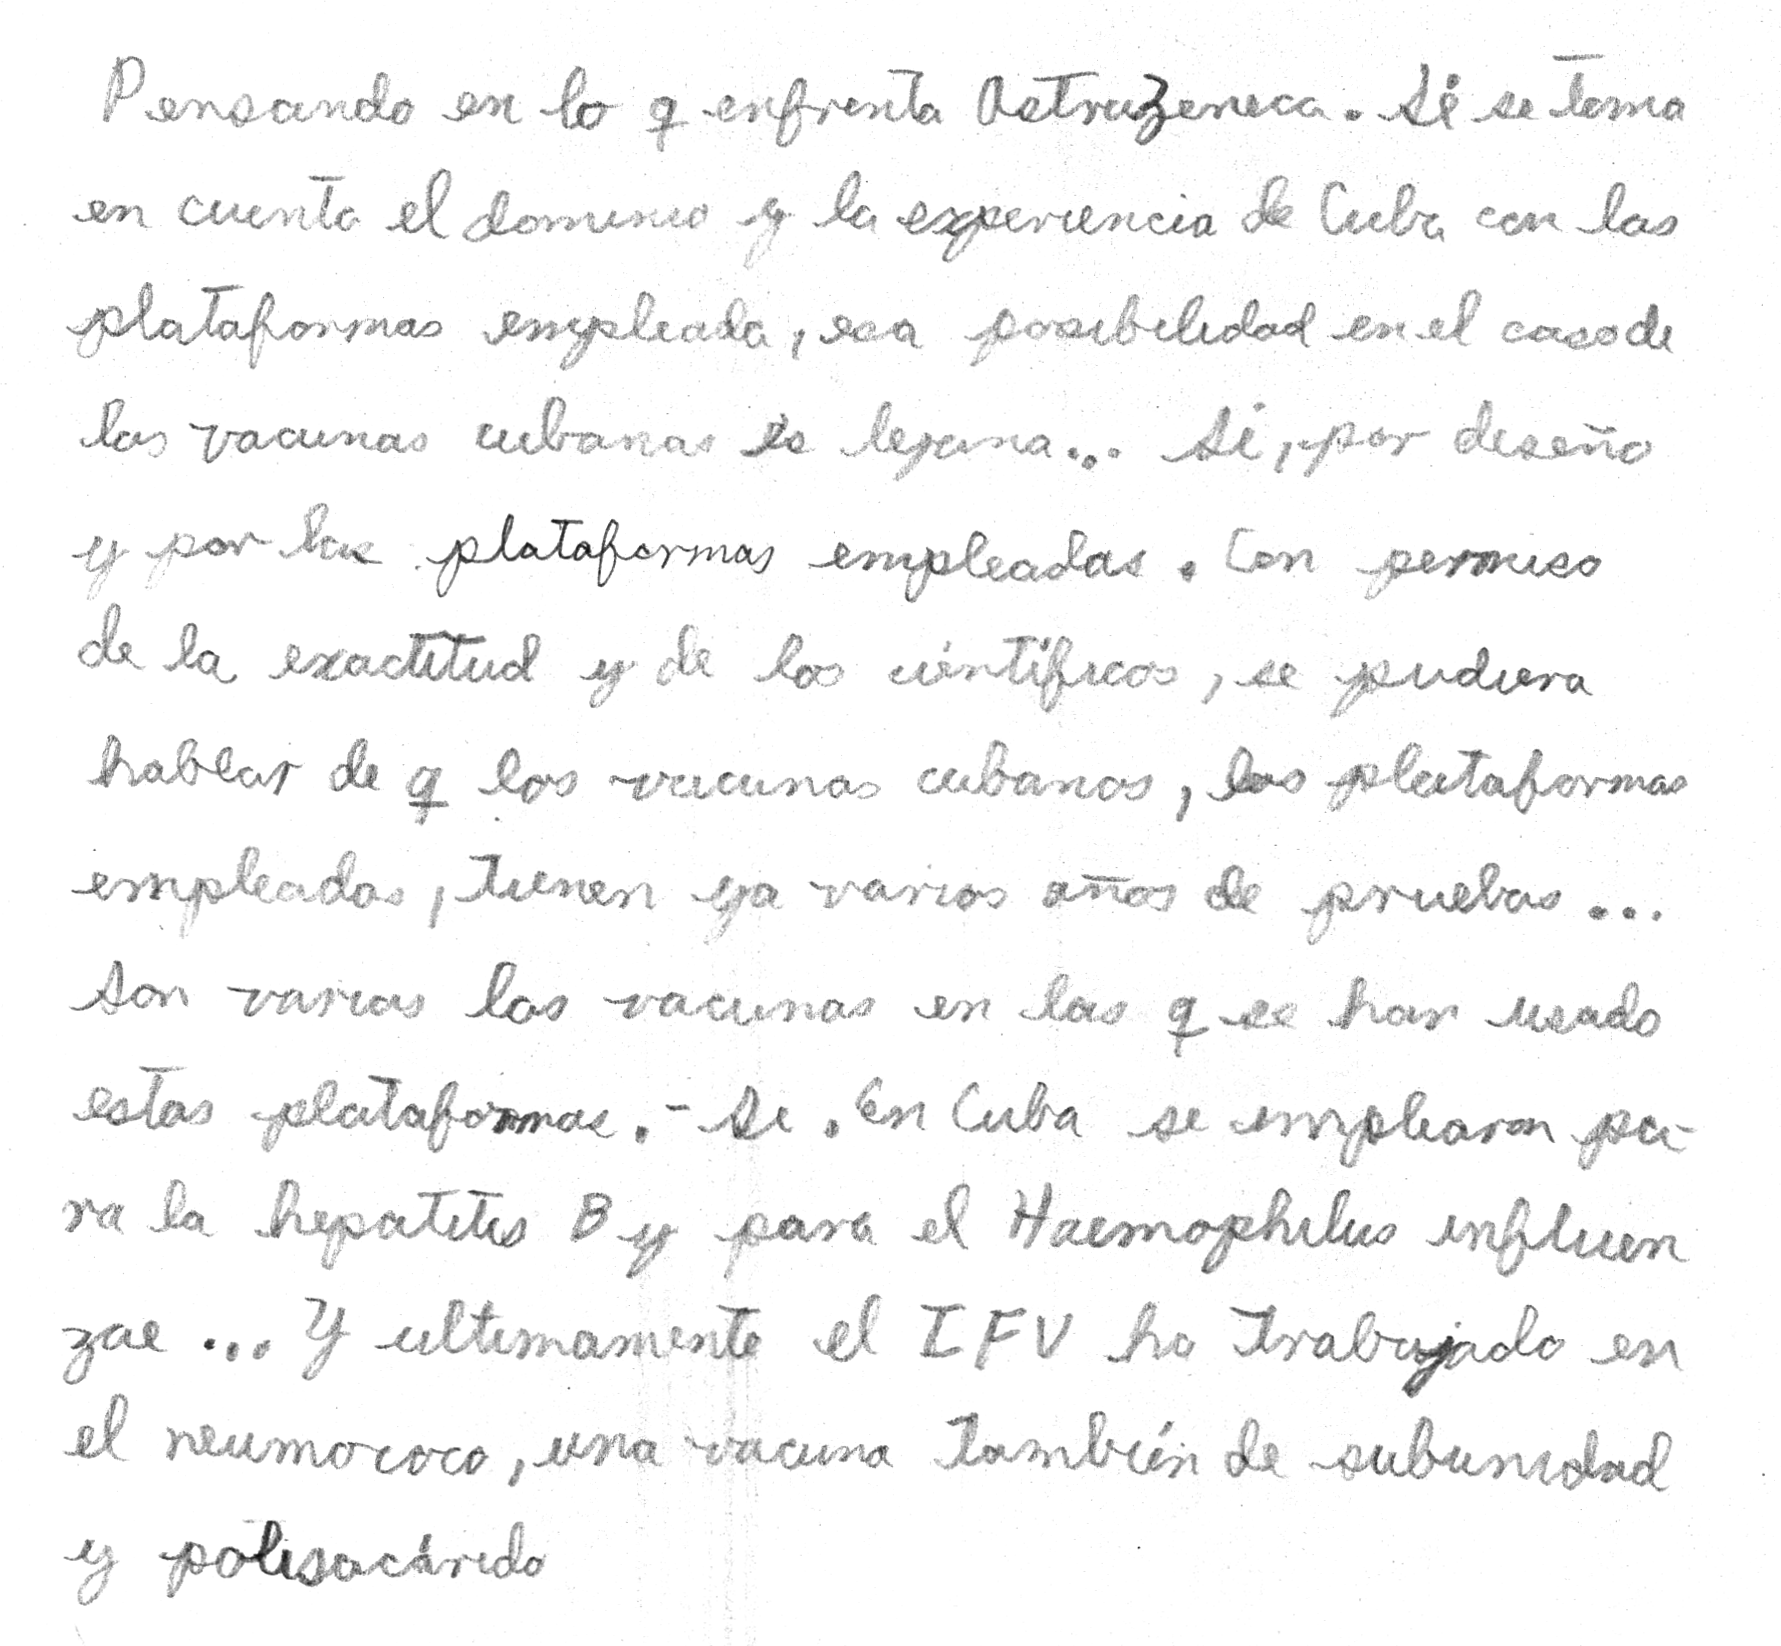 Pensando en lo q enfrenta Astrazeneca. Si se toma
en cuenta el dominio y la experiencia de Cuba con las
plataformas empleada, esa posibilidad en el caso de
las vacunas cubanas es lejana... Sí, por diseño
y por las plataformas empleadas. Con permiso
de la exactitud y de los científicos, se pudiera
hablar de q las vacunas cubanas, las plataformas
empleadas, tienen ya varios años de pruebas...
Son varias las vacunas en las q se han usado
estas plataformas. - Si. En Cuba se emplearon pa-
ra la hepatitis B y para el Haemophilus influen
zae ... Y ultimamente el IFV ha trabajado en
el neumococo, una vacuna también de subunidad
y polisacárido